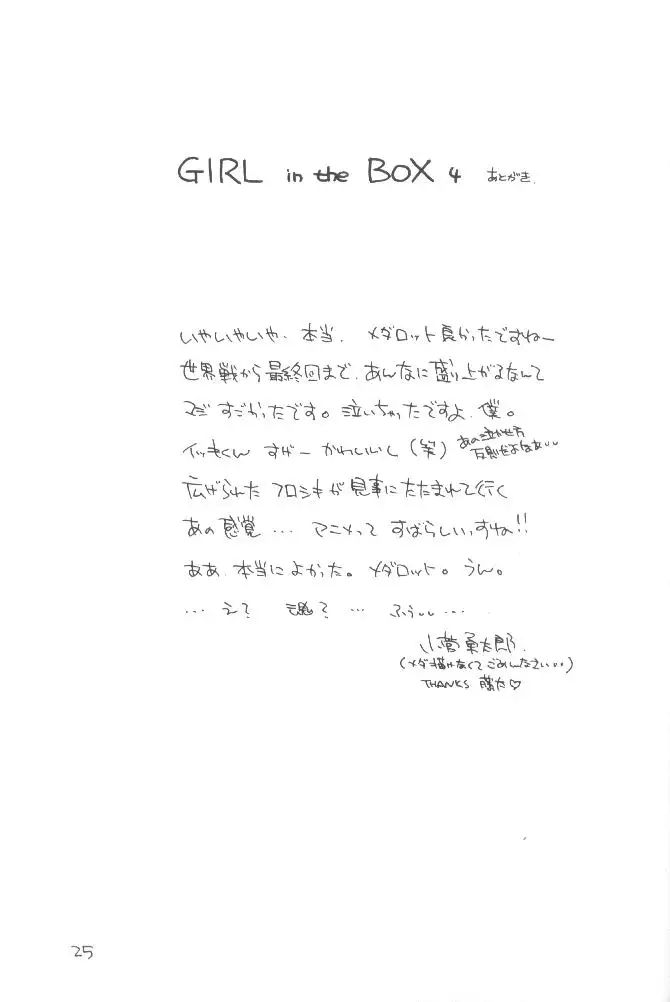 GIRL in the BOX 4 あとがき.
いやいやいや、本当、メダロット良かったですねー
世界戦から最終回まで、あんなに盛り上がるなんて
マジすごかったです。泣いちゃったですよ、僕。
イッキくん すげー かわいいし (笑) あの泣かせ方
反則だよなぁ‥
広げられた フロシキが見事にたたまれて行く
あの感覚 … アニメって すばらしいっすね!!
ああ、本当によかった。メダロット。うん。
… え? 魂? … ふぅ‥ …
小菅勇太郎.
(メダ描けなくてごめんなさい‥)
THANKS 藤た♡
25